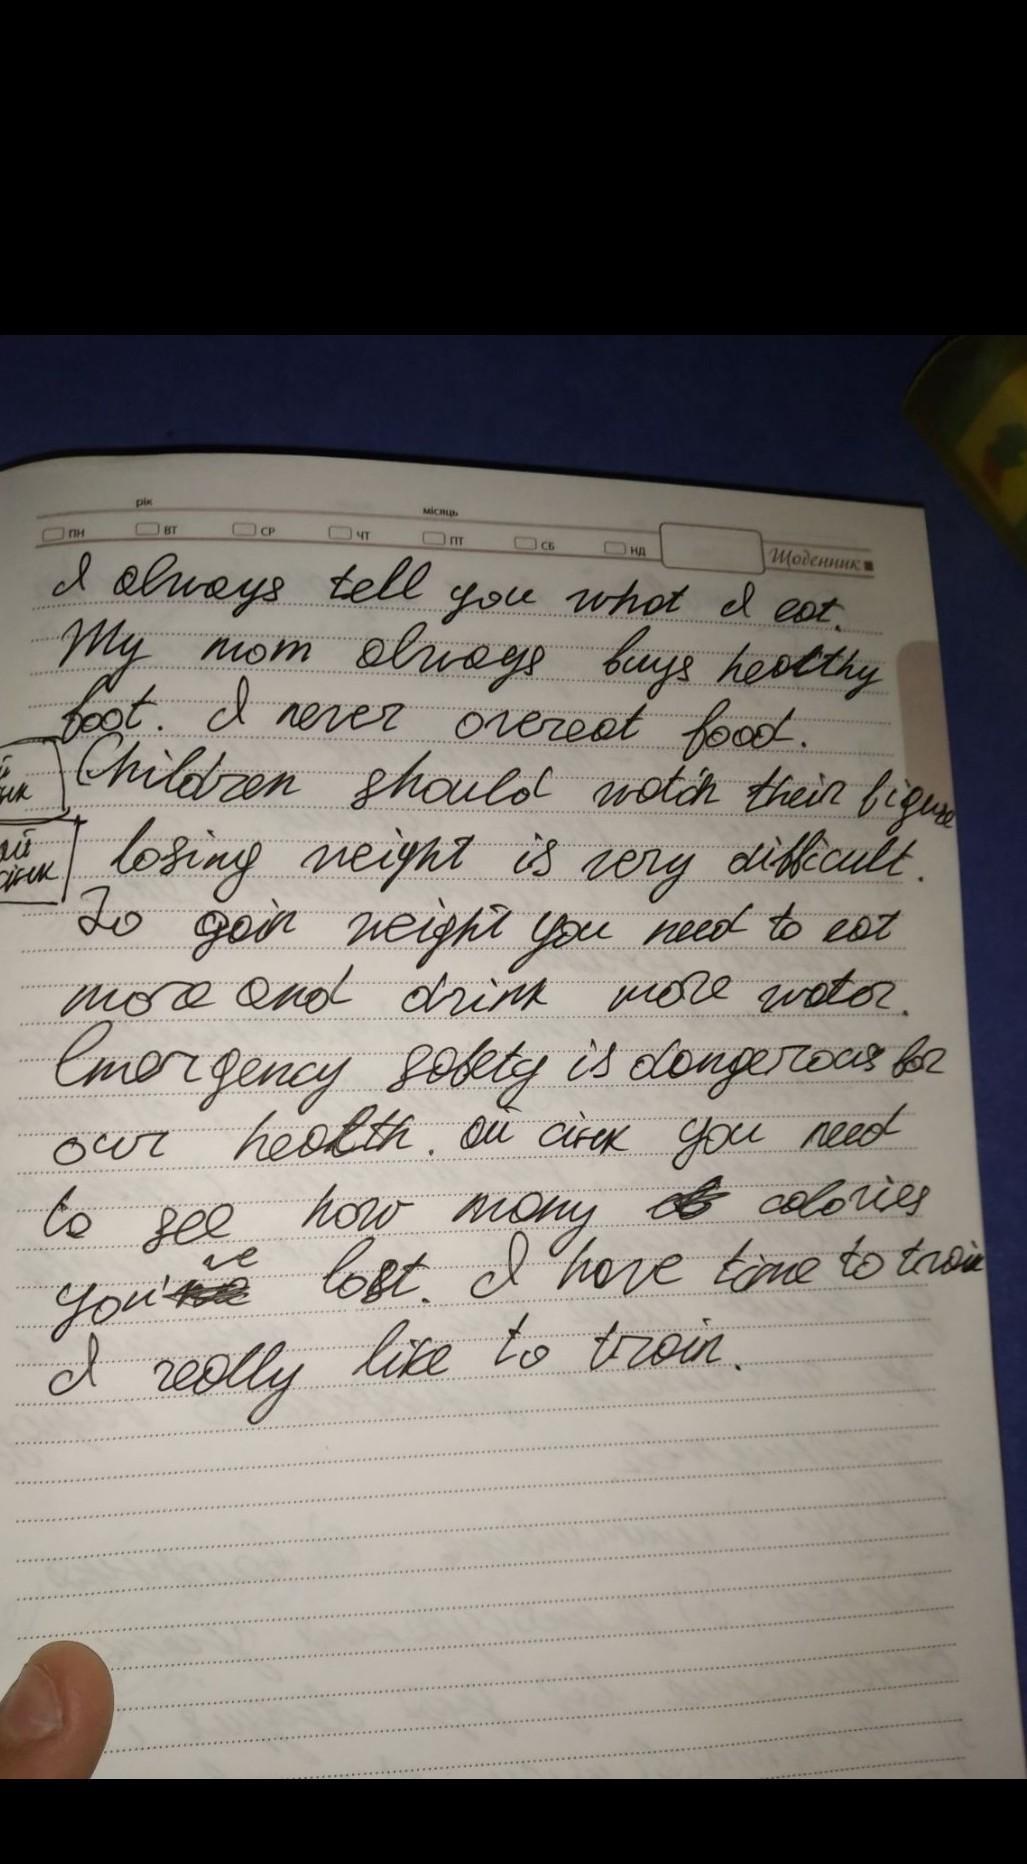 рік місяць
ПН ВТ СР ЧТ ПТ СБ НД Щоденник
I always tell you what I eat.
My mom always buys healthy
foot. I never overeat food.
Children should watch their figure
losing weight is very difficult.
To gain weight you need to eat
more and drink more water.
Emergency safety is dangerous for
our health. ой сінк you need
to see how many calories
you've lost. I have time to train
I really like to train.